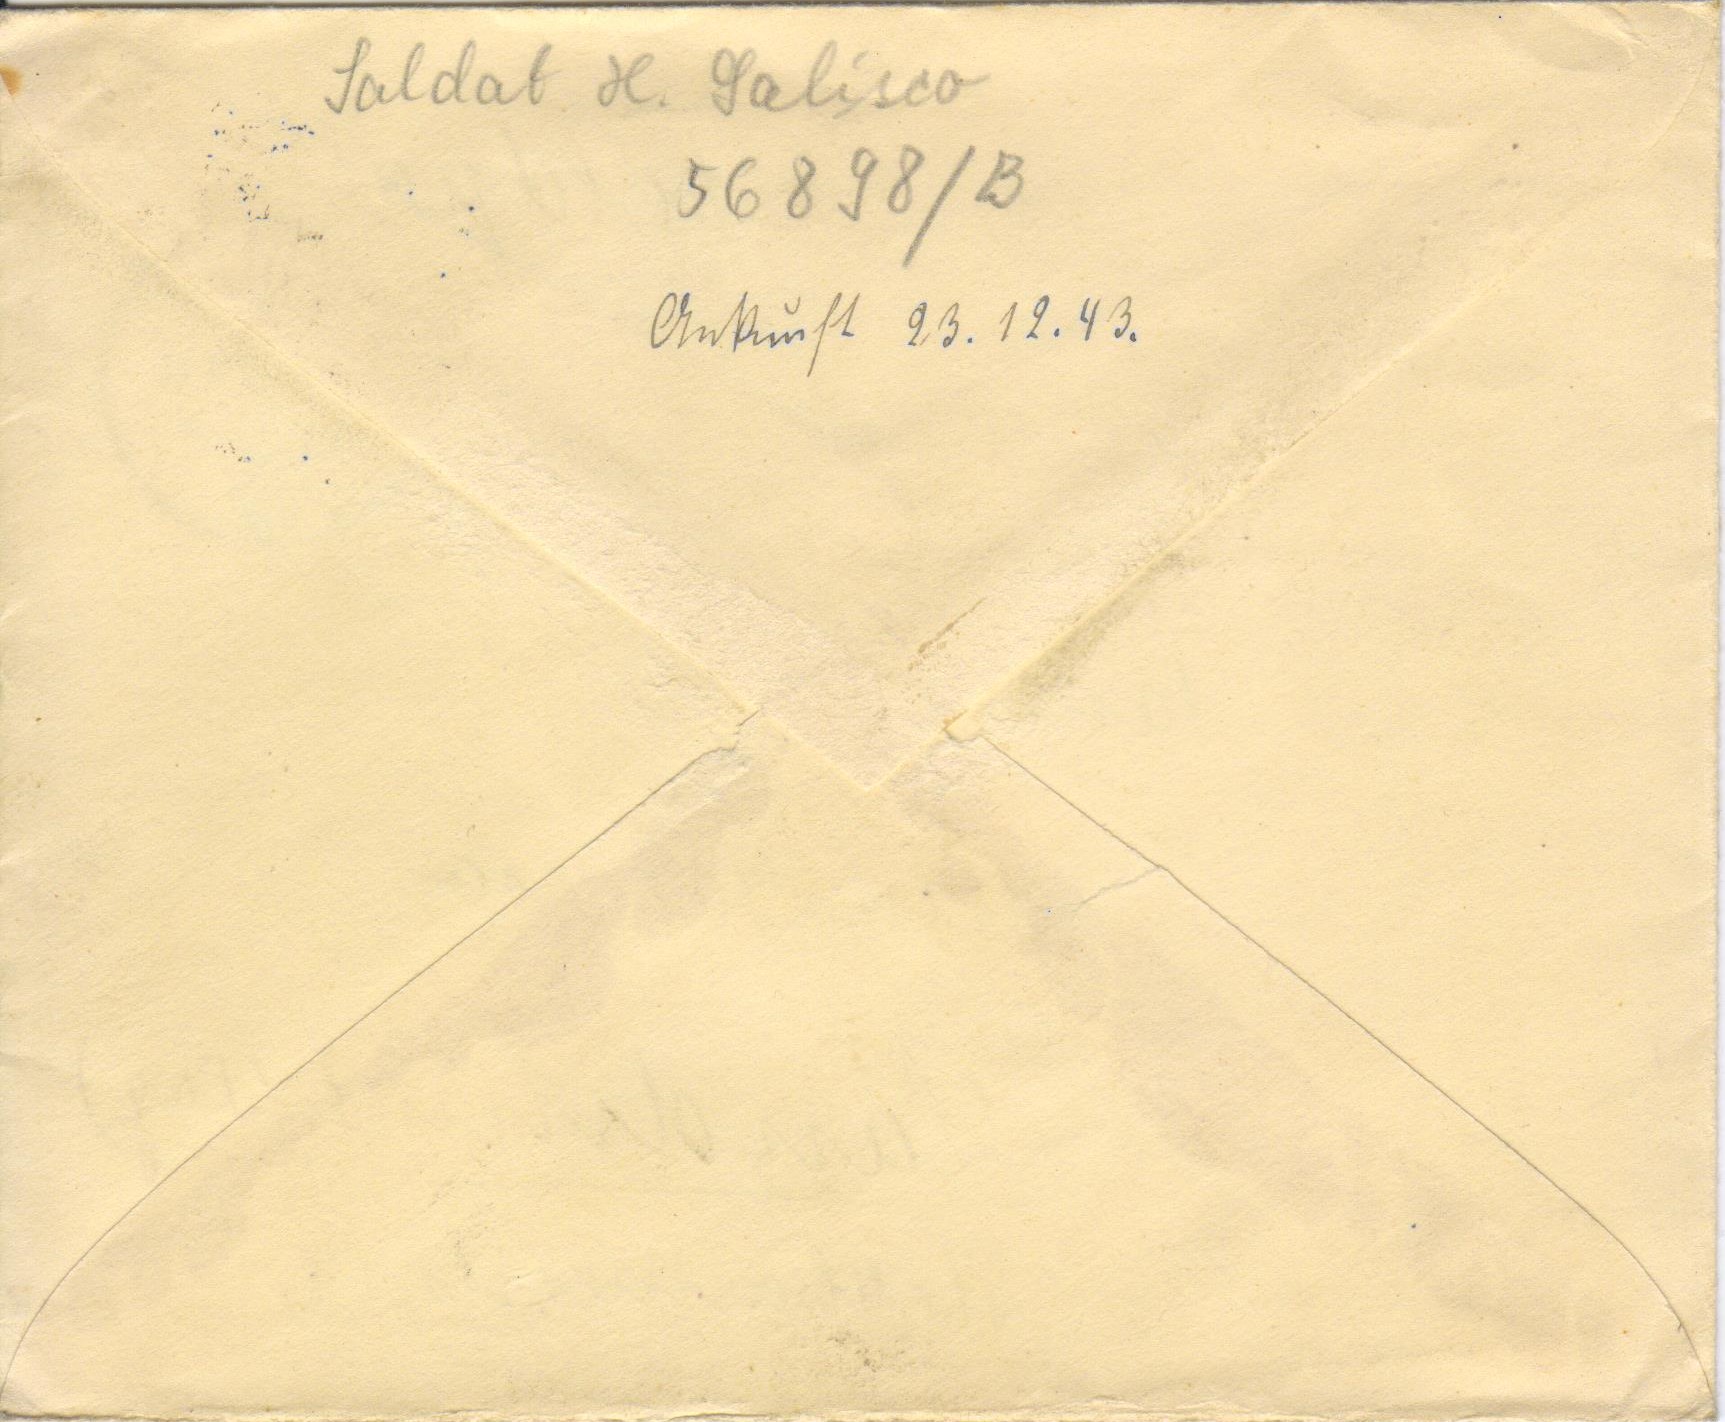 Soldat H. Salisco
56898/B
Ankunft 23.12.43.